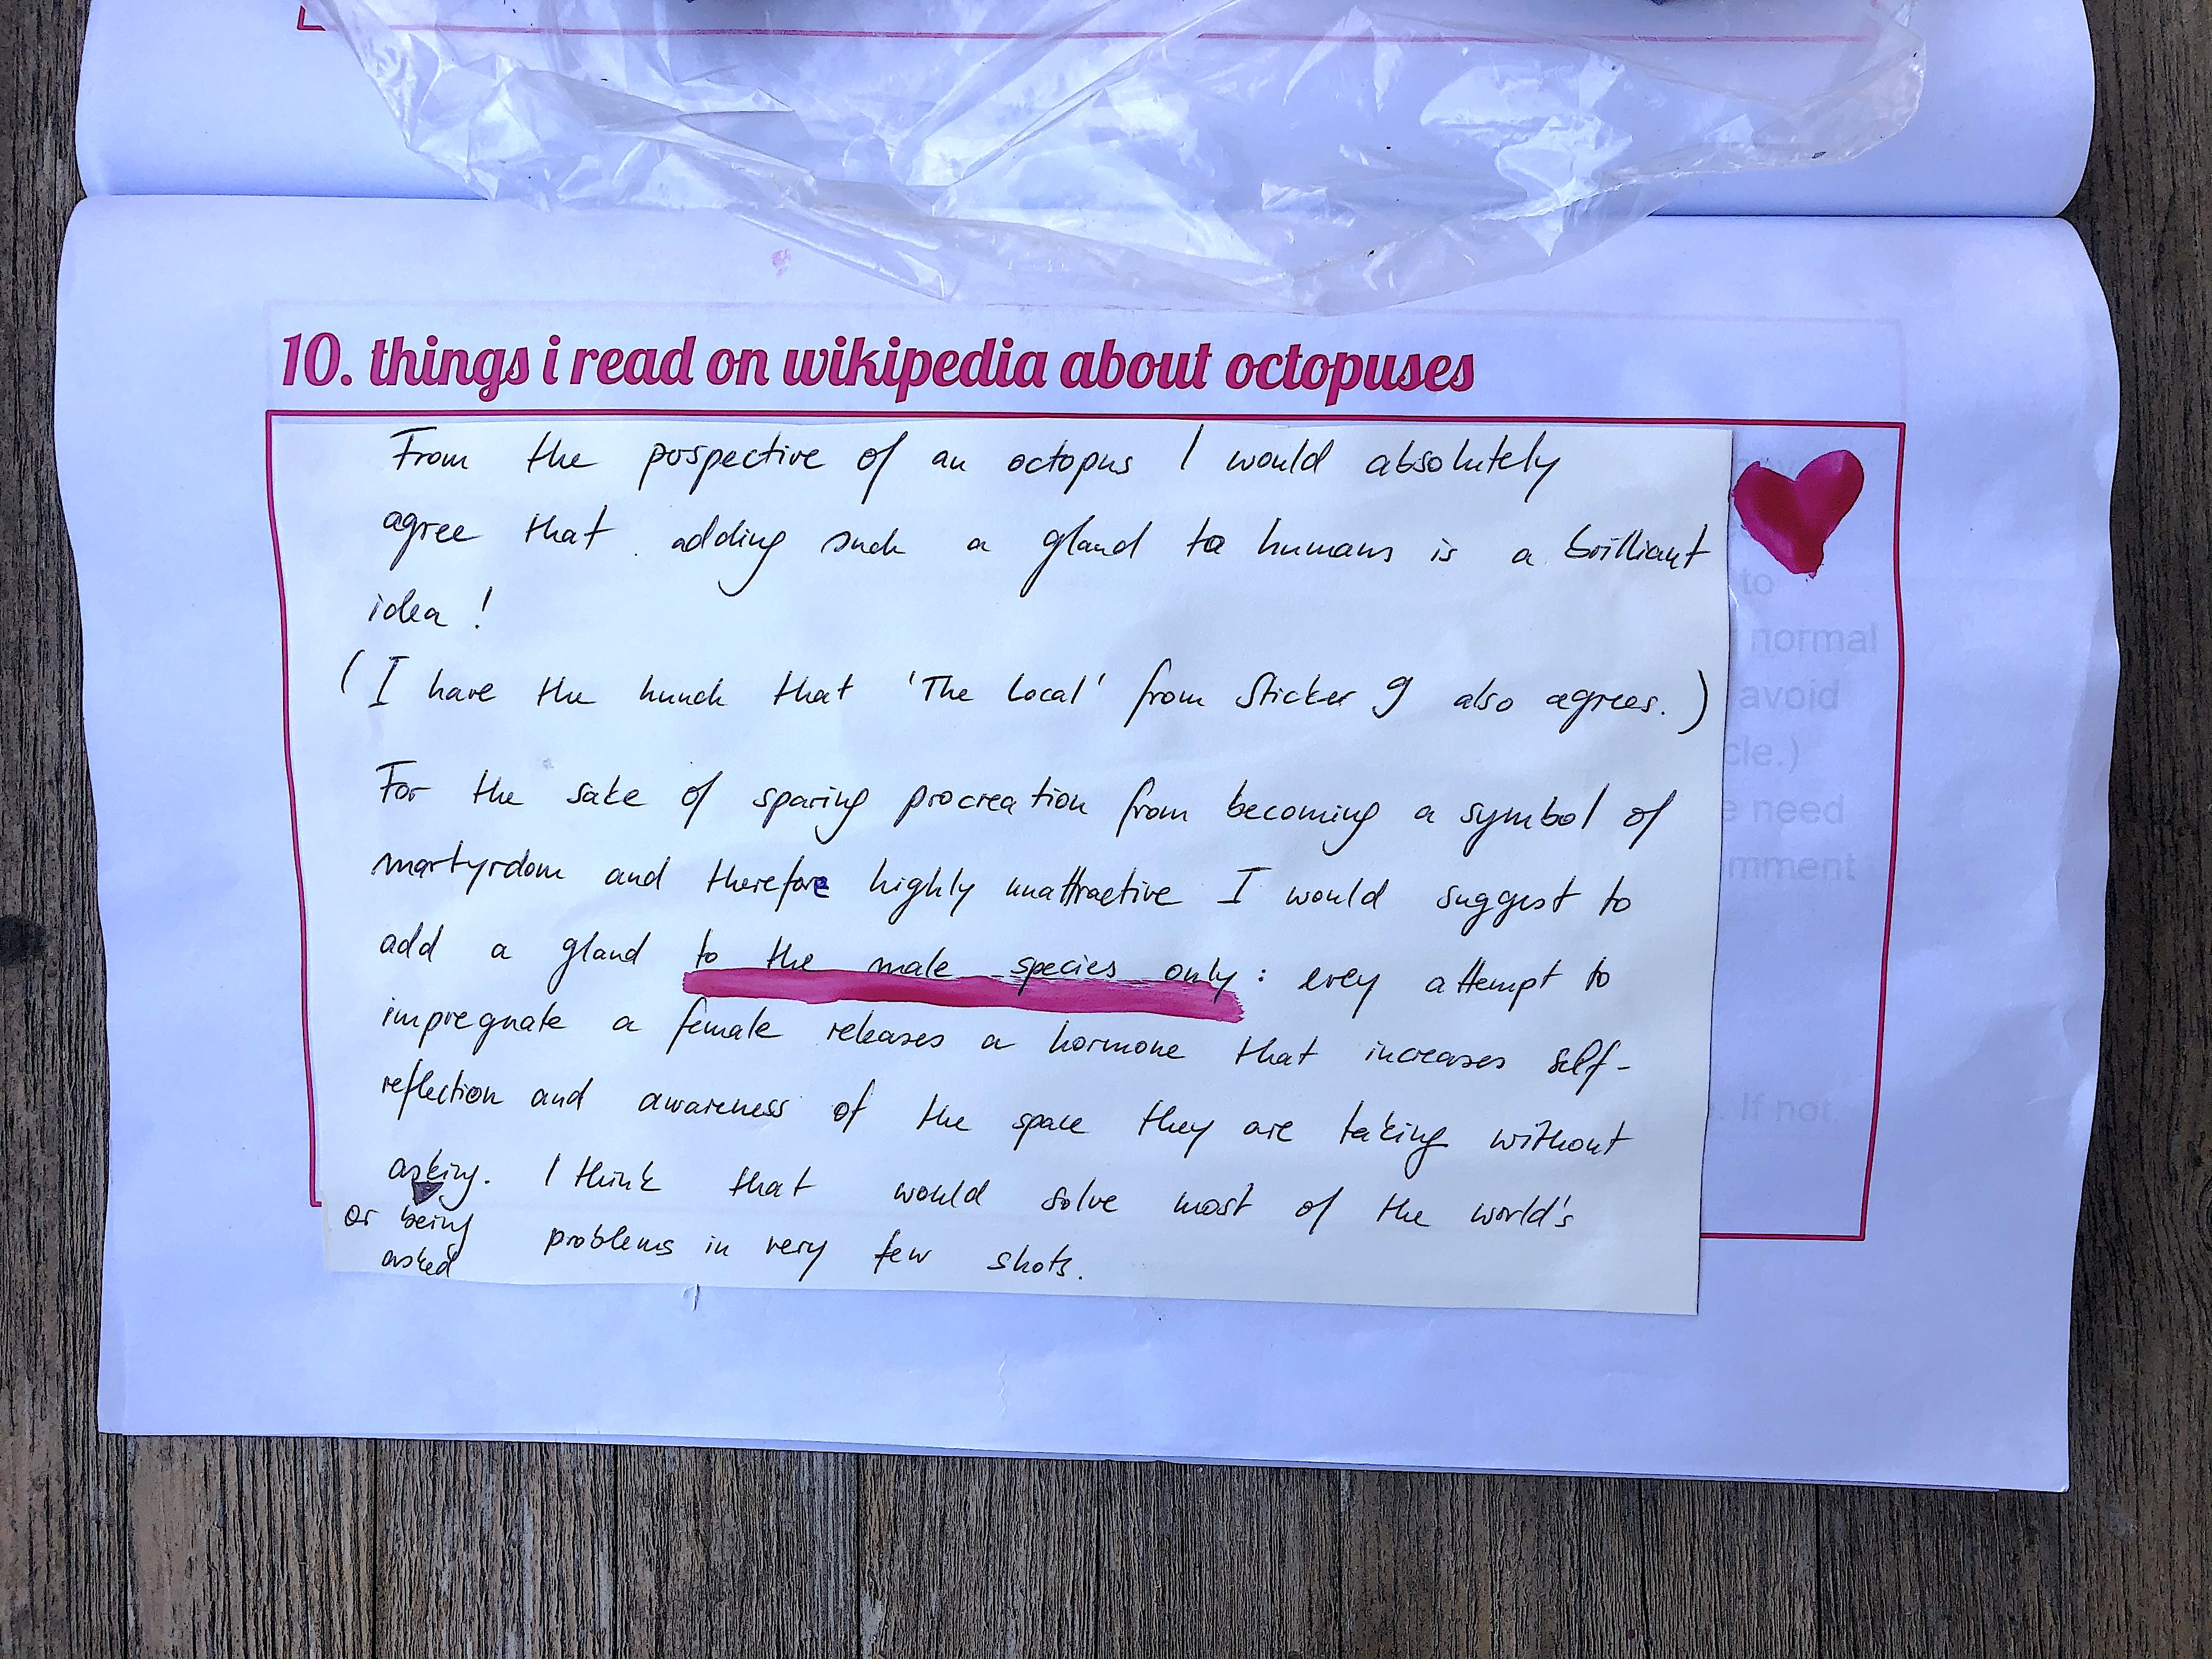 10. things i read on wikipedia about octopuses
From the perspective of an octopus I would absolutely
agree that adding such a gland to humans is a brilliant
idea!
(I have the hunch that 'The Local' from Sticker 9 also agrees.)
For the sake of sparing procreation from becoming a symbol of
martyrdom and therefore highly unattractive I would suggest to
add a gland to the male species only: evey attempt to
impregnate a female releases a hormone that increases self-
reflection and awareness of the space they are taking without
asking. I think that would solve most of the world's
or being
asked problems in very few shots.
to
normal
avoid
cle.)
need
mment
. If not